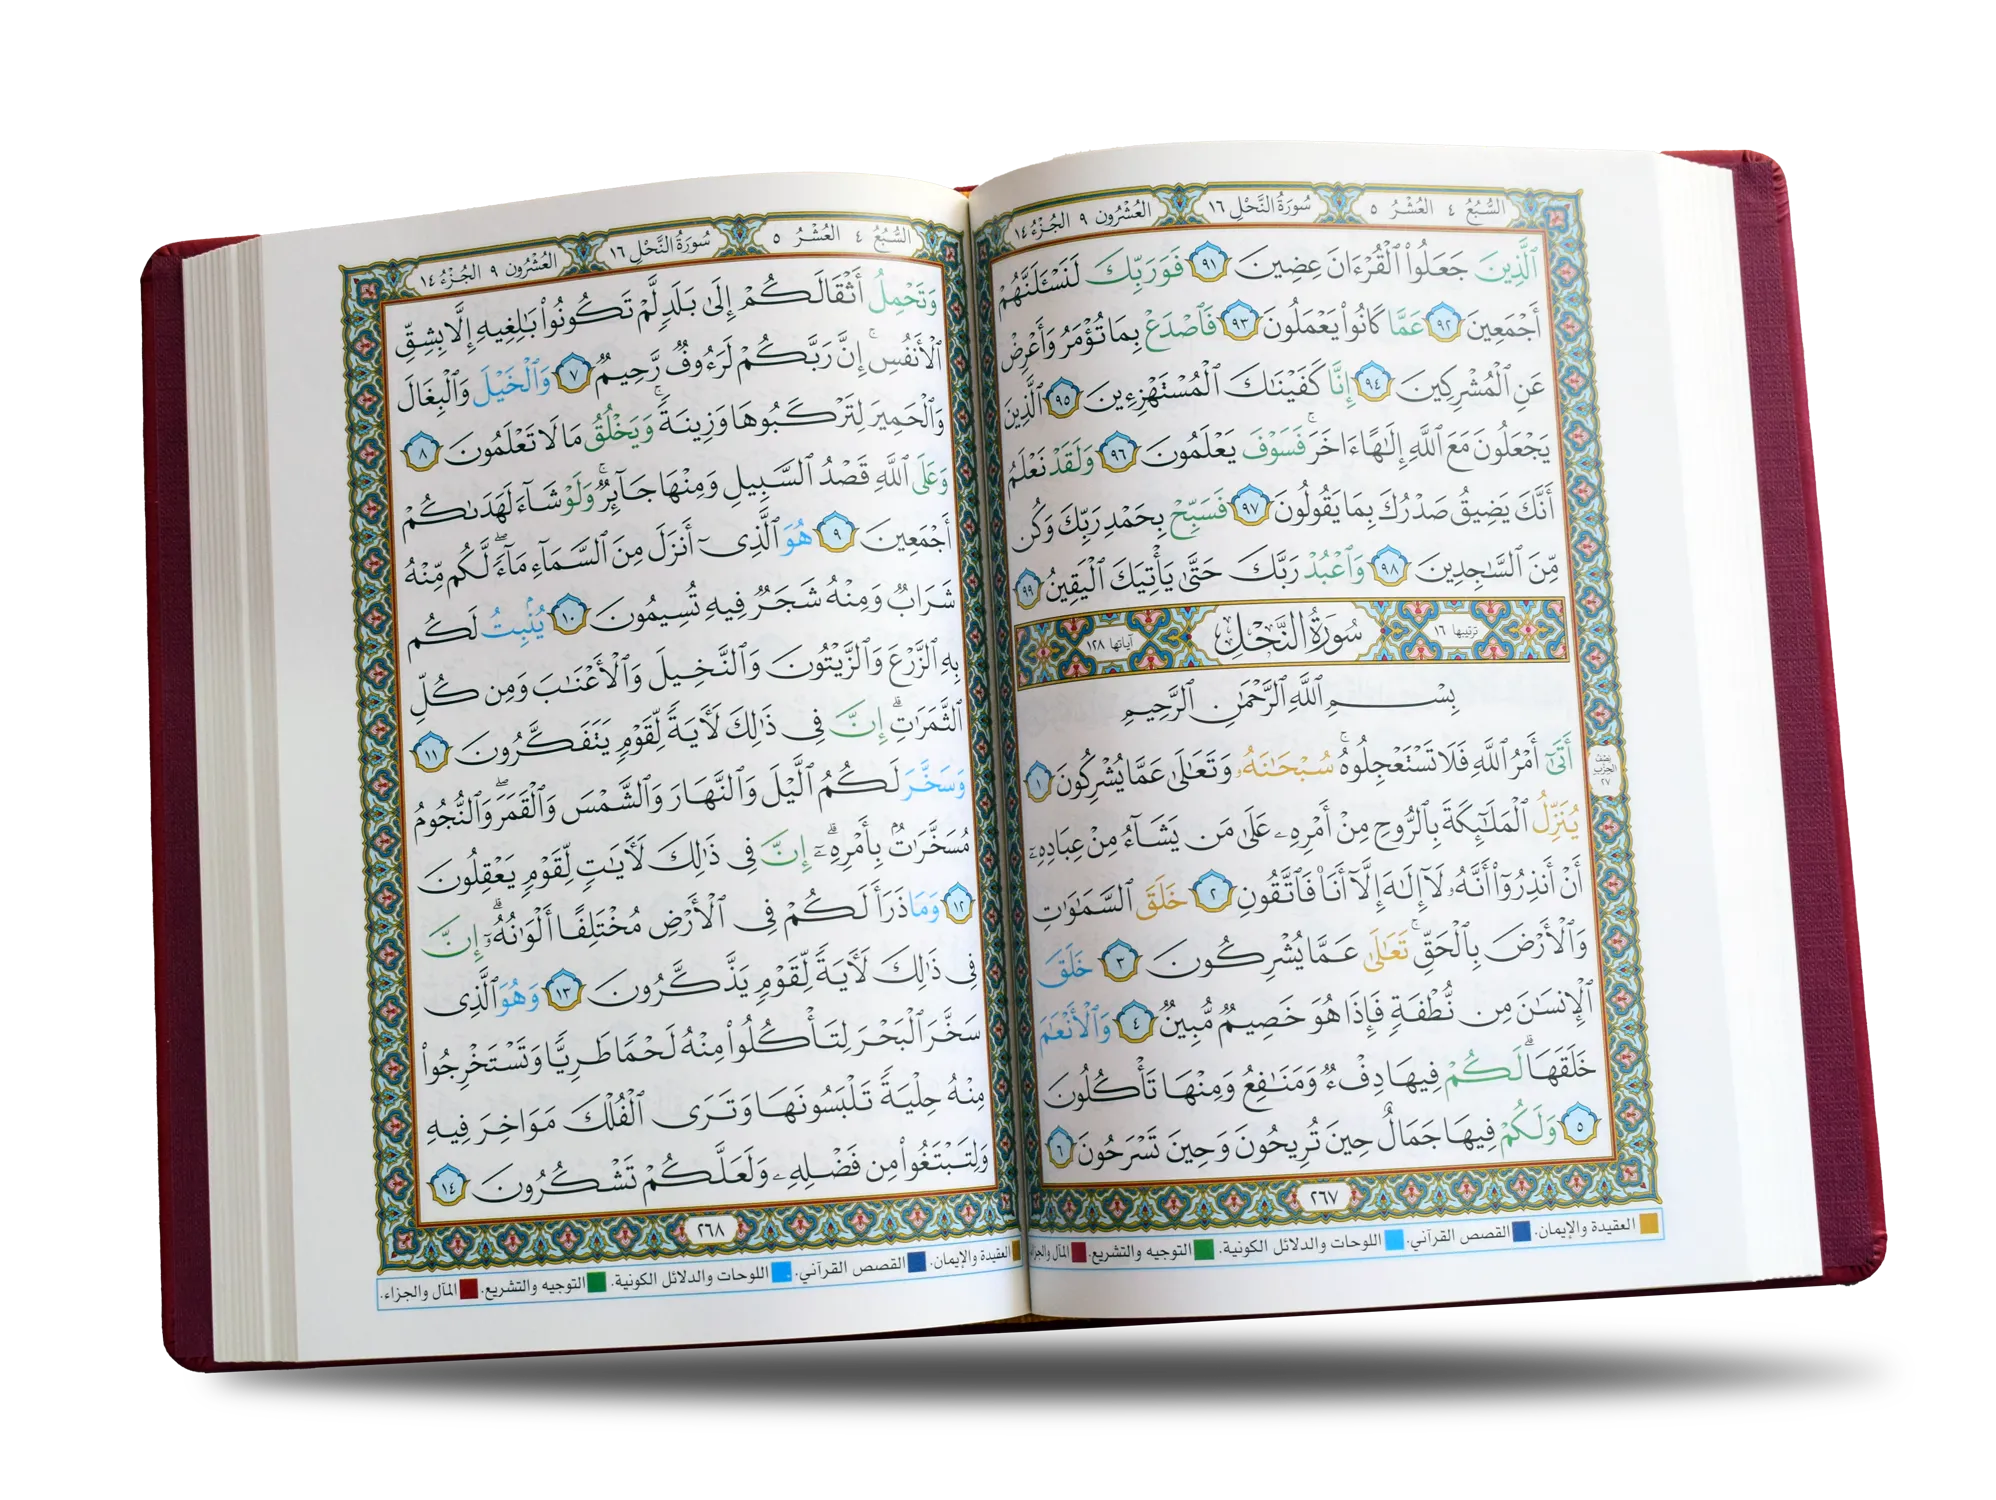 السُّبُعُ ٤ العُشْرُ ٥ سُورَةُ النَّحْلِ ١٦ العُشْرُون ٩ الجُزْءُ ١٤
ٱلَّذِينَ جَعَلُوا۟ ٱلْقُرْءَانَ عِضِينَ ٩١ فَوَرَبِّكَ لَنَسْـَٔلَنَّهُمْ
أَجْمَعِينَ ٩٢ عَمَّا كَانُوا۟ يَعْمَلُونَ ٩٣ فَٱصْدَعْ بِمَا تُؤْمَرُ وَأَعْرِضْ
عَنِ ٱلْمُشْرِكِينَ ٩٤ إِنَّا كَفَيْنَـٰكَ ٱلْمُسْتَهْزِءِينَ ٩٥ ٱلَّذِينَ
يَجْعَلُونَ مَعَ ٱللَّهِ إِلَـٰهًا ءَاخَرَ ۚ فَسَوْفَ يَعْلَمُونَ ٩٦ وَلَقَدْ نَعْلَمُ
أَنَّكَ يَضِيقُ صَدْرُكَ بِمَا يَقُولُونَ ٩٧ فَسَبِّحْ بِحَمْدِ رَبِّكَ وَكُن
مِّنَ ٱلسَّـٰجِدِينَ ٩٨ وَٱعْبُدْ رَبَّكَ حَتَّىٰ يَأْتِيَكَ ٱلْيَقِينُ ٩٩
ترتيبها ١٦ سُورَةُ النَّحْلِ آياتها ١٢٨
بِسْمِ ٱللَّهِ ٱلرَّحْمَـٰنِ ٱلرَّحِيمِ
أَتَىٰٓ أَمْرُ ٱللَّهِ فَلَا تَسْتَعْجِلُوهُ ۚ سُبْحَـٰنَهُۥ وَتَعَـٰلَىٰ عَمَّا يُشْرِكُونَ ١
يُنَزِّلُ ٱلْمَلَـٰٓئِكَةَ بِٱلرُّوحِ مِنْ أَمْرِهِۦ عَلَىٰ مَن يَشَآءُ مِنْ عِبَادِهِۦٓ
أَنْ أَنذِرُوٓا۟ أَنَّهُۥ لَآ إِلَـٰهَ إِلَّآ أَنَا۠ فَٱتَّقُونِ ٢ خَلَقَ ٱلسَّمَـٰوَٰتِ
وَٱلْأَرْضَ بِٱلْحَقِّ ۚ تَعَـٰلَىٰ عَمَّا يُشْرِكُونَ ٣ خَلَقَ
ٱلْإِنسَـٰنَ مِن نُّطْفَةٍ فَإِذَا هُوَ خَصِيمٌ مُّبِينٌ ٤ وَٱلْأَنْعَـٰمَ
خَلَقَهَا ۗ لَكُمْ فِيهَا دِفْءٌ وَمَنَـٰفِعُ وَمِنْهَا تَأْكُلُونَ
٥ وَلَكُمْ فِيهَا جَمَالٌ حِينَ تُرِيحُونَ وَحِينَ تَسْرَحُونَ ٦
نِصْفُ
الحِزْبِ
٢٧
٢٦٧
العقيدة والإيمان. القصص القرآني. اللوحات والدلائل الكونية. التوجيه والتشريع. المآل والجزاء
السُّبُعُ ٤ العُشْرُ ٥ سُورَةُ النَّحْلِ ١٦ العُشْرُون ٩ الجُزْءُ ١٤
وَتَحْمِلُ أَثْقَالَكُمْ إِلَىٰ بَلَدٍ لَّمْ تَكُونُوا۟ بَـٰلِغِيهِ إِلَّا بِشِقِّ
ٱلْأَنفُسِ ۚ إِنَّ رَبَّكُمْ لَرَءُوفٌ رَّحِيمٌ ٧ وَٱلْخَيْلَ وَٱلْبِغَالَ
وَٱلْحَمِيرَ لِتَرْكَبُوهَا وَزِينَةً ۚ وَيَخْلُقُ مَا لَا تَعْلَمُونَ ٨
وَعَلَى ٱللَّهِ قَصْدُ ٱلسَّبِيلِ وَمِنْهَا جَآئِرٌ ۚ وَلَوْ شَآءَ لَهَدَىٰكُمْ
أَجْمَعِينَ ٩ هُوَ ٱلَّذِىٓ أَنزَلَ مِنَ ٱلسَّمَآءِ مَآءً ۖ لَّكُم مِّنْهُ
شَرَابٌ وَمِنْهُ شَجَرٌ فِيهِ تُسِيمُونَ ١٠ يُنۢبِتُ لَكُم
بِهِ ٱلزَّرْعَ وَٱلزَّيْتُونَ وَٱلنَّخِيلَ وَٱلْأَعْنَـٰبَ وَمِن كُلِّ
ٱلثَّمَرَٰتِ ۗ إِنَّ فِى ذَٰلِكَ لَـَٔايَةً لِّقَوْمٍ يَتَفَكَّرُونَ ١١
وَسَخَّرَ لَكُمُ ٱلَّيْلَ وَٱلنَّهَارَ وَٱلشَّمْسَ وَٱلْقَمَرَ ۖ وَٱلنُّجُومُ
مُسَخَّرَٰتٌۢ بِأَمْرِهِۦٓ ۗ إِنَّ فِى ذَٰلِكَ لَـَٔايَـٰتٍ لِّقَوْمٍ يَعْقِلُونَ
١٢ وَمَا ذَرَأَ لَكُمْ فِى ٱلْأَرْضِ مُخْتَلِفًا أَلْوَٰنُهُۥٓ ۗ إِنَّ
فِى ذَٰلِكَ لَـَٔايَةً لِّقَوْمٍ يَذَّكَّرُونَ ١٣ وَهُوَ ٱلَّذِى
سَخَّرَ ٱلْبَحْرَ لِتَأْكُلُوا۟ مِنْهُ لَحْمًا طَرِيًّا وَتَسْتَخْرِجُوا۟
مِنْهُ حِلْيَةً تَلْبَسُونَهَا وَتَرَى ٱلْفُلْكَ مَوَاخِرَ فِيهِ
وَلِتَبْتَغُوا۟ مِن فَضْلِهِۦ وَلَعَلَّكُمْ تَشْكُرُونَ ١٤
٢٦٨
العقيدة والإيمان. القصص القرآني. اللوحات والدلائل الكونية. التوجيه والتشريع. المآل والجزاء.